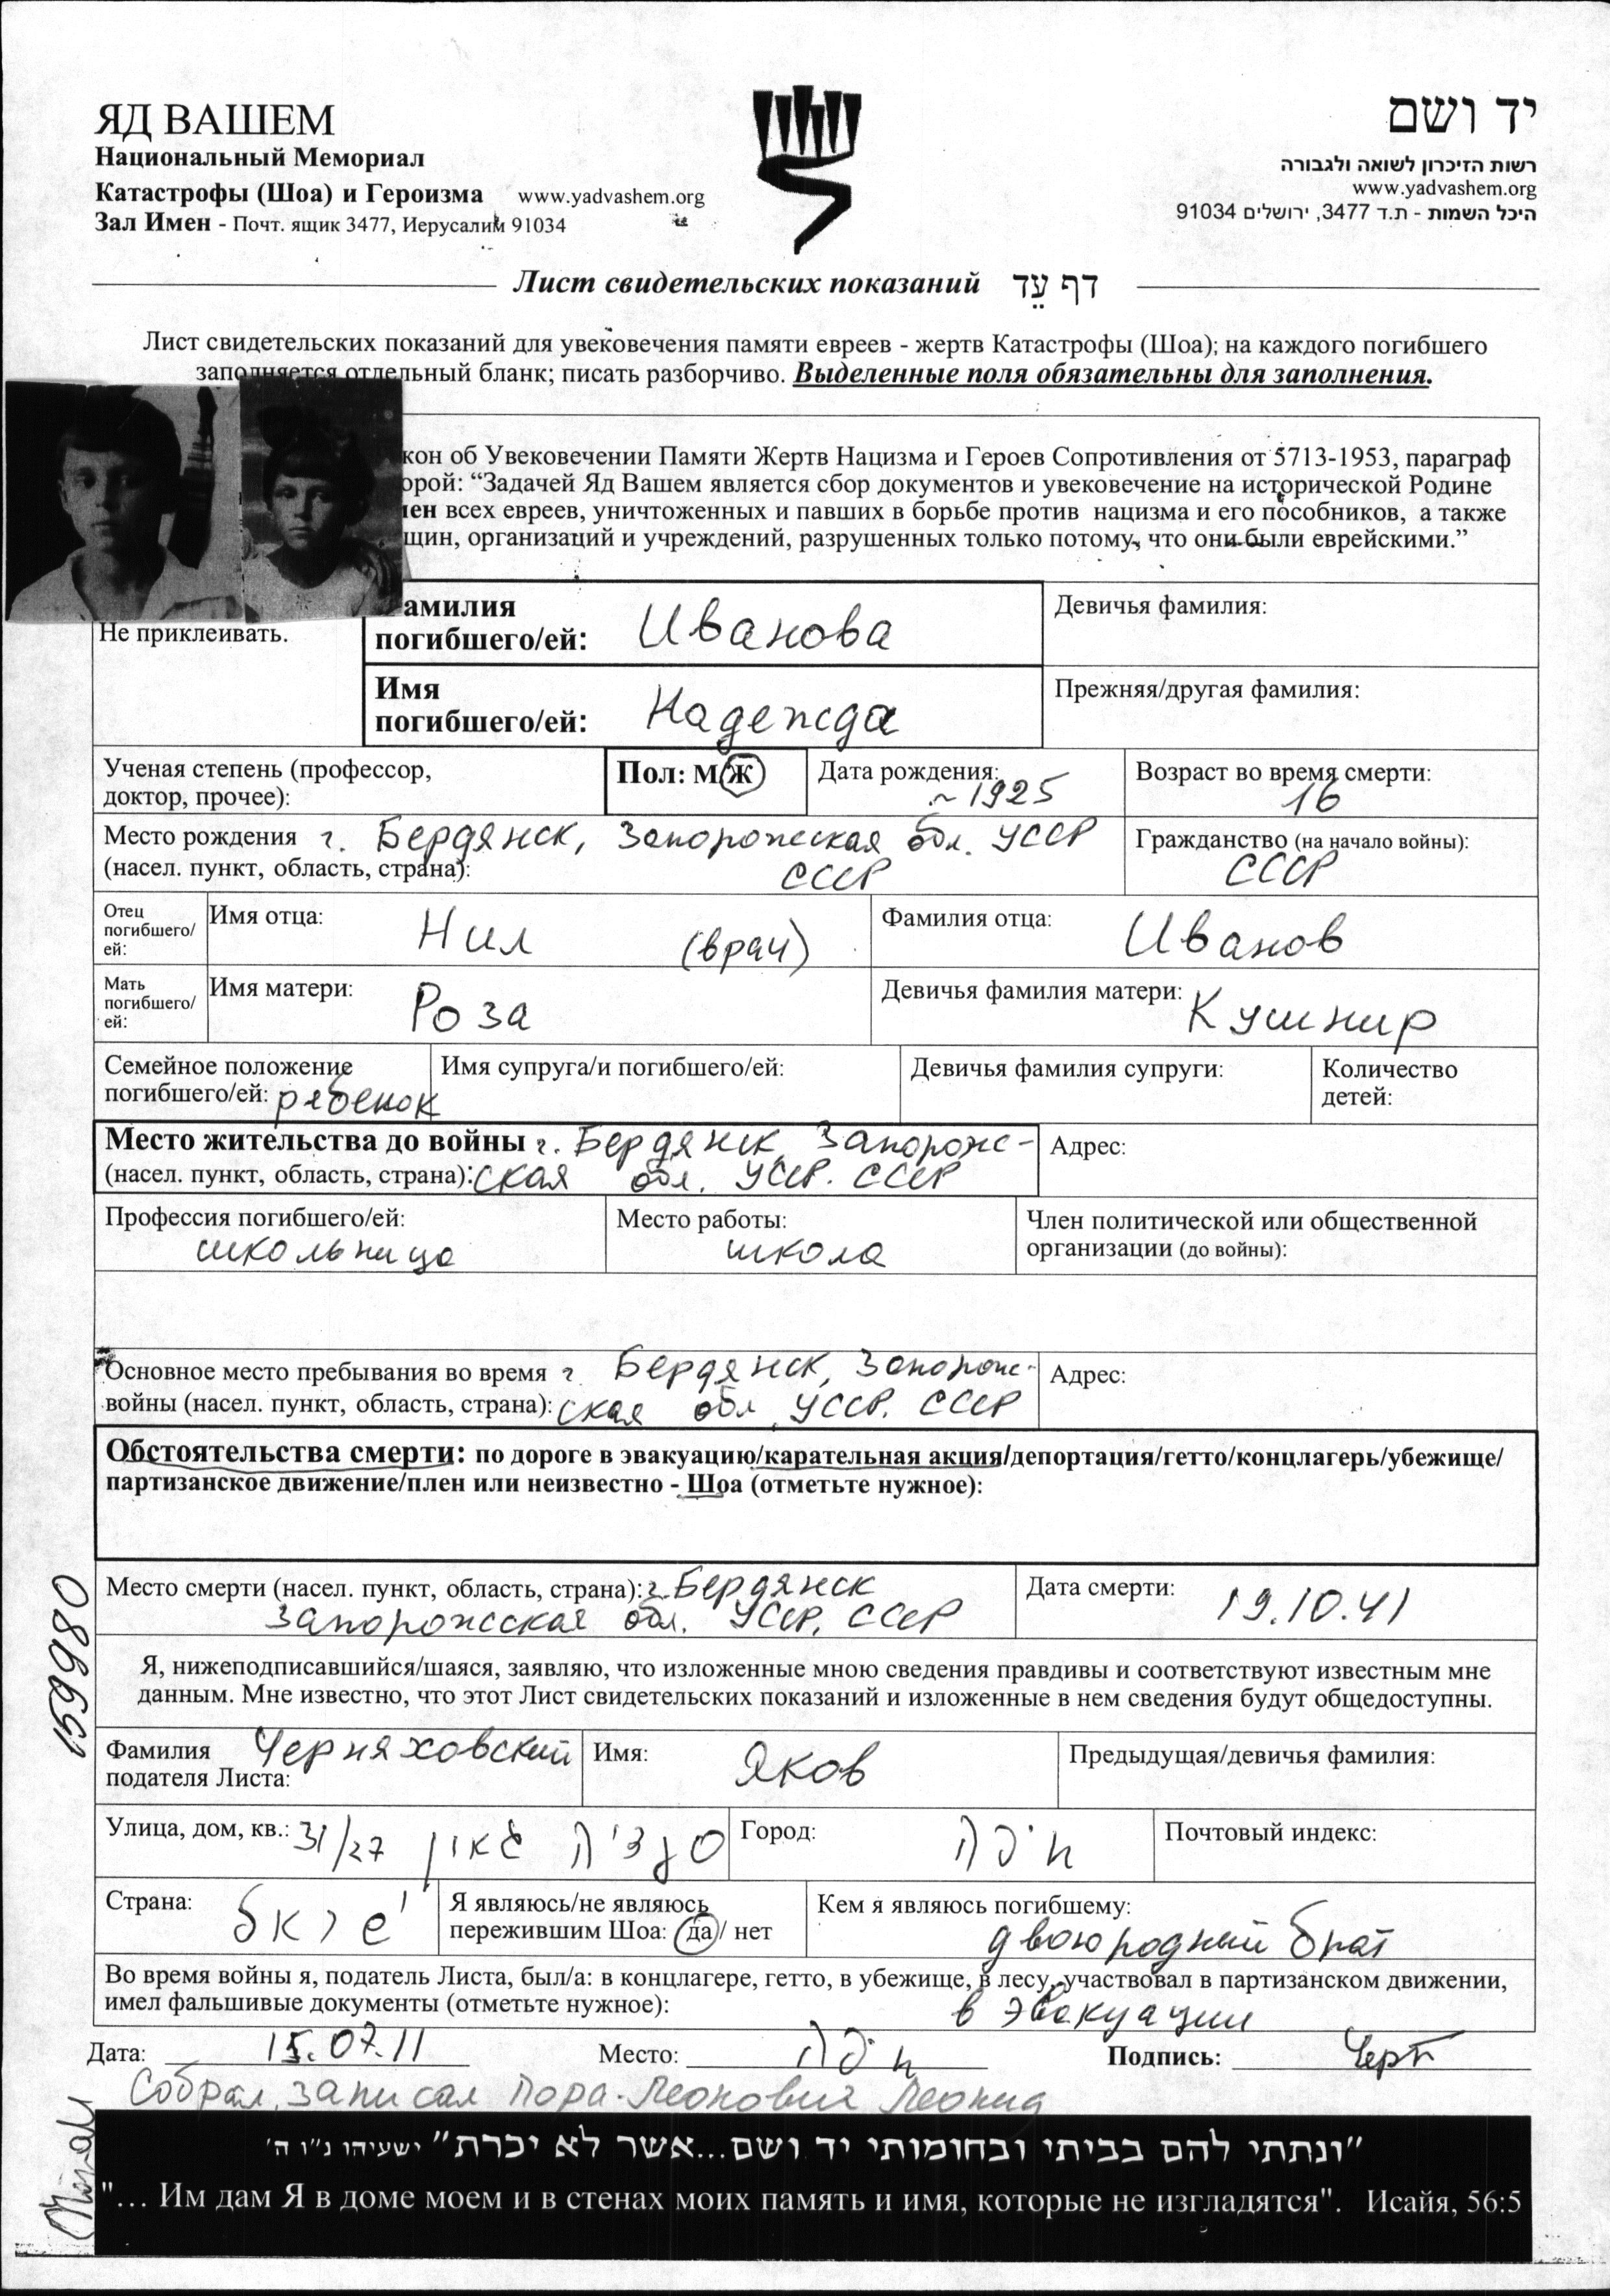 ЯД ВАШЕМ
Национальный Мемориал
Катастрофы (Шоа) и Героизма www.yadvashem.org
Зал Имен - Почт. ящик 3477, Иерусалим 91034
יד ושם
רשות הזיכרון לשואה ולגבורה
www.yadvashem.org
היכל השמות - ת.ד 3477, ירושלים 91034
Лист свидетельских показаний דף עֵד
Лист свидетельских показаний для увековечения памяти евреев - жертв Катастрофы (Шоа); на каждого погибшего
заполняется отдельный бланк; писать разборчиво. Выделенные поля обязательны для заполнения.
кон об Увековечении Памяти Жертв Нацизма и Героев Сопротивления от 5713-1953, параграф
орой: “Задачей Яд Вашем является сбор документов и увековечение на исторической Родине
ен всех евреев, уничтоженных и павших в борьбе против нацизма и его пособников, а также
щин, организаций и учреждений, разрушенных только потому, что они были еврейскими.”
Не приклеивать.
амилия
погибшего/ей: Иванова
Девичья фамилия:
Имя
погибшего/ей: Надежда
Прежняя/другая фамилия:
Ученая степень (профессор,
доктор, прочее):
Пол: М/Ж
Дата рождения:
~ 1925
Возраст во время смерти:
16
Место рождения г. Бердянск, Запорожская обл. УССР
(насел. пункт, область, страна): СССР
Гражданство (на начало войны):
СССР
Отец
погибшего/
ей:
Имя отца: Нил (врач)
Фамилия отца: Иванов
Мать
погибшего/
ей:
Имя матери: Роза
Девичья фамилия матери: Кушнир
Семейное положение
погибшего/ей: ребенок
Имя супруга/и погибшего/ей:
Девичья фамилия супруги:
Количество
детей:
Место жительства до войны г. Бердянск Запорож-
(насел. пункт, область, страна): ская обл. УССР. СССР
Адрес:
Профессия погибшего/ей:
школьница
Место работы:
школа
Член политической или общественной
организации (до войны):
Основное место пребывания во время г Бердянск, Запорож-
войны (насел. пункт, область, страна): ская обл, УССР. СССР
Адрес:
Обстоятельства смерти: по дороге в эвакуацию/карательная акция/депортация/гетто/концлагерь/убежище/
партизанское движение/плен или неизвестно - Шоа (отметьте нужное):
Место смерти (насел. пункт, область, страна): г. Бердянск
Запорожсская обл. УССР, СССР
Дата смерти: 19.10.41
159980
Я, нижеподписавшийся/шаяся, заявляю, что изложенные мною сведения правдивы и соответствуют известным мне
данным. Мне известно, что этот Лист свидетельских показаний и изложенные в нем сведения будут общедоступны.
Фамилия Черняховский
подателя Листа:
Имя: Яков
Предыдущая/девичья фамилия:
Улица, дом, кв.: 31/27
Город: חיפה
Почтовый индекс:
Страна:
Я являюсь/не являюсь
пережившим Шоа: да / нет
Кем я являюсь погибшему:
двоюродный брат
Во время войны я, податель Листа, был/а: в концлагере, гетто, в убежище, в лесу, участвовал в партизанском движении,
имел фальшивые документы (отметьте нужное): в эвакуации
Дата: 15.07.11 Место: חיפה Подпись: Черт
Собрал, записал Леонид
"ונתתי להם בביתי ובחומותי יד ושם...אשר לא יכרת" ישעיהו נ"ו ה'
"... Им дам Я в доме моем и в стенах моих память и имя, которые не изгладятся". Исайя, 56:5